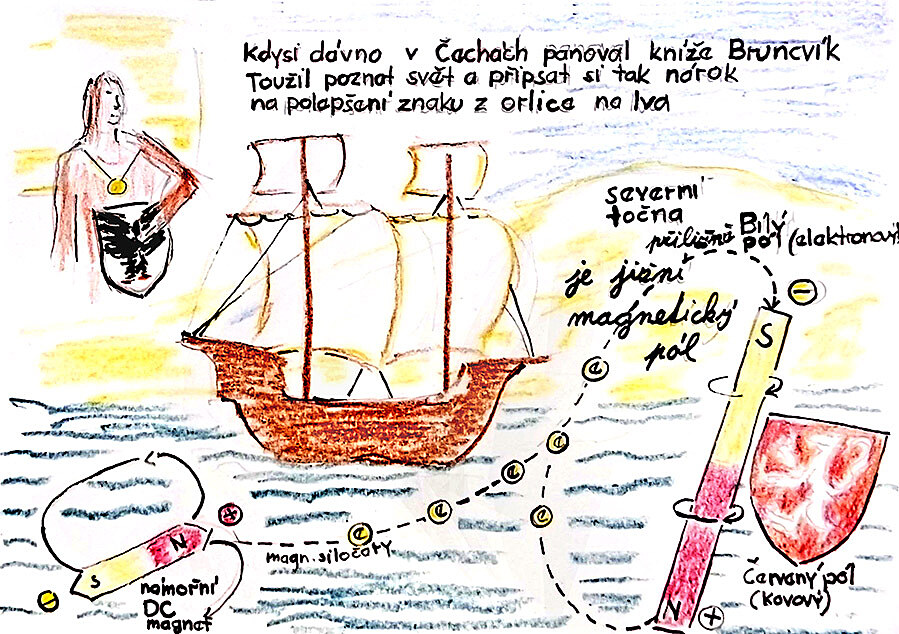 Kdysi dávno v Čechách panoval kníže Bruncvík
Toužil poznat svět a připsat si tak nárok
na polapšení znaku z orlice na lva
severní
točna
přilišně Bílý
pól (elektronový)
je jižní
magnetický
pól
S
e
e
e
e
e
e
magn. siločáry
N
S
námořní
DC
magnet
N
Červený pól
(kovový)